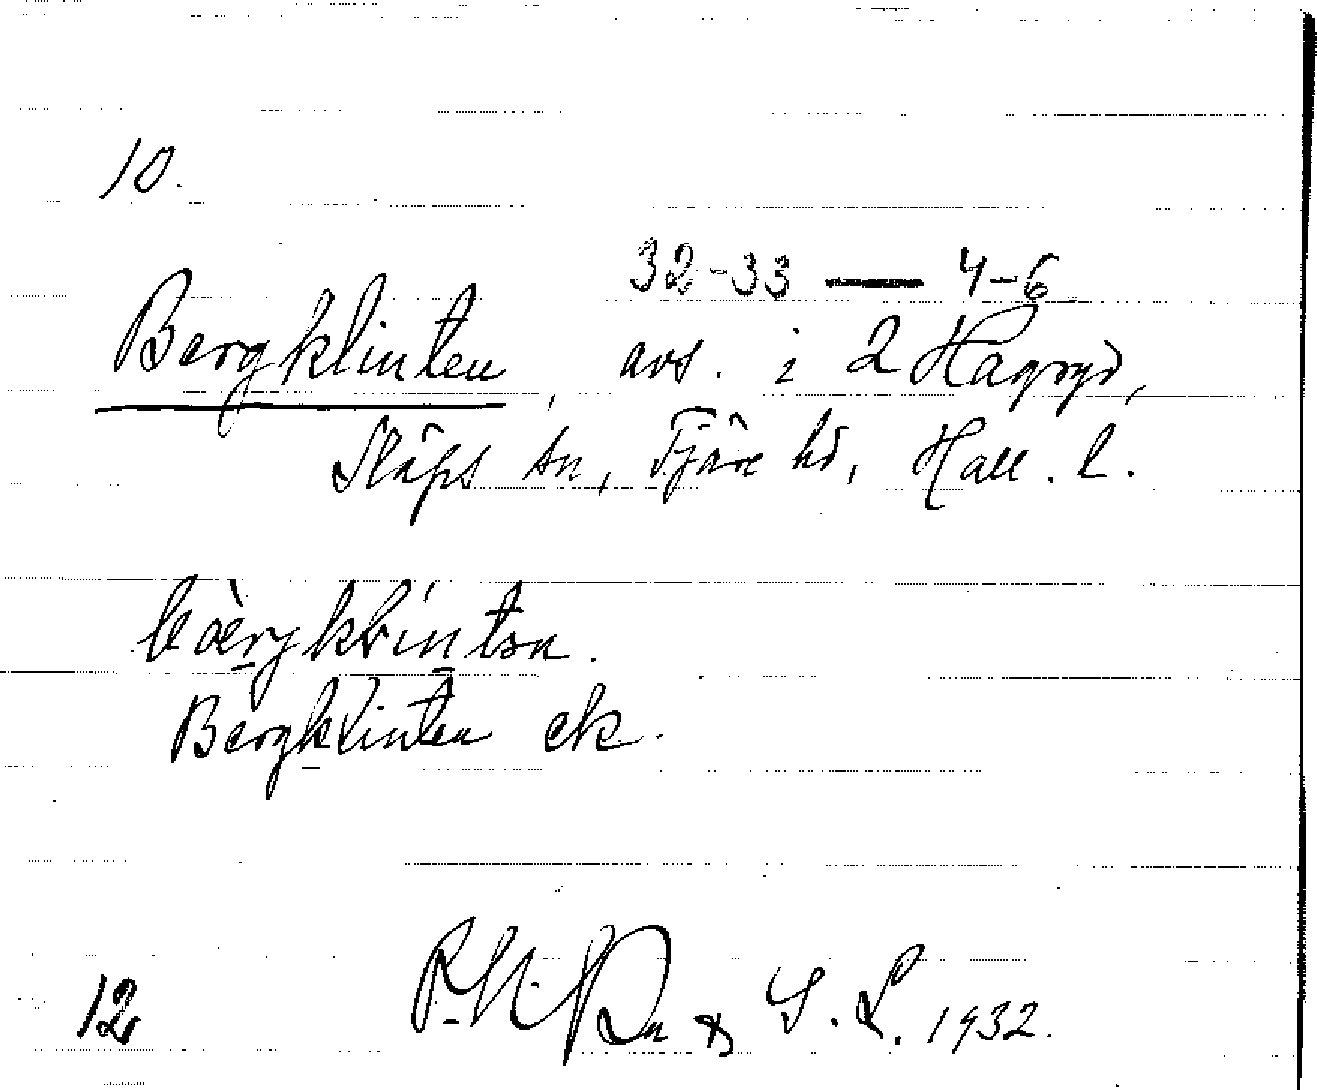 10.
32-33 — 4-6
Bergklinten, avs. i 2 Hagryd,
Släps sn, Fjäre hd, Hall. l.
bærgklintən.
Bergklinten ek.
12 & S. L. 1932.